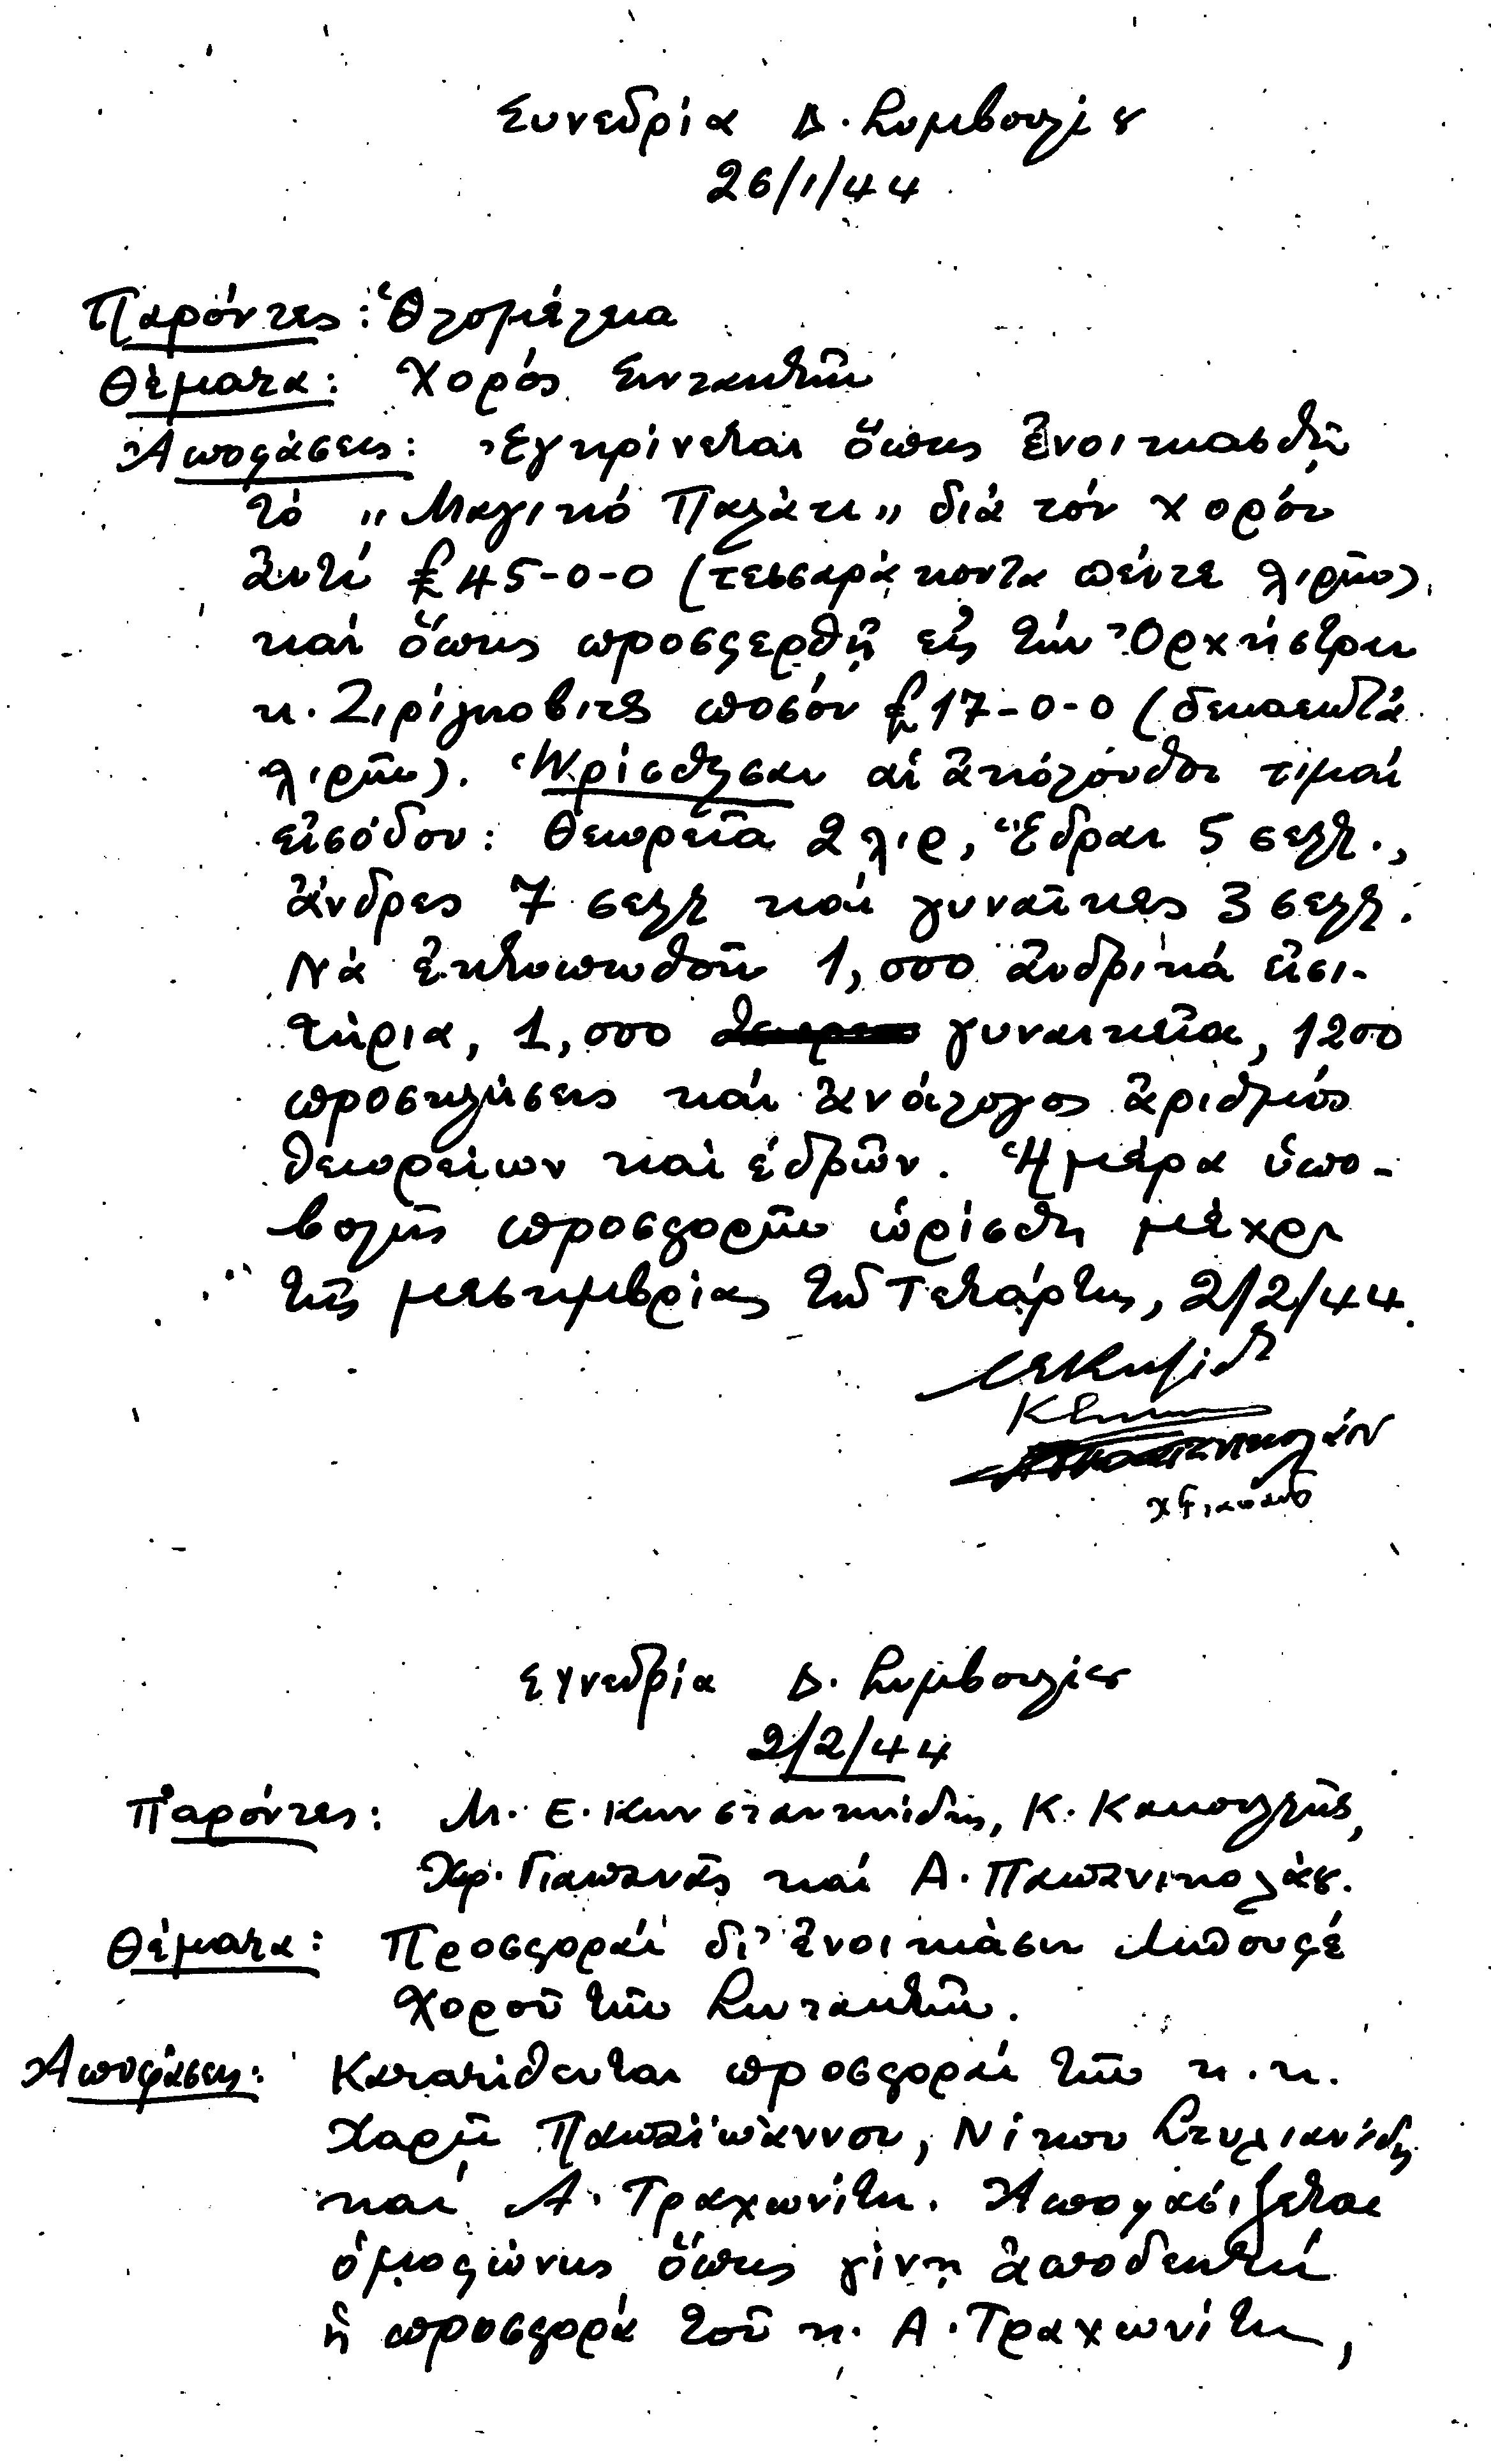 Συνεδρία Δ. Συμβουλίου
26/1/44
Παρόντες: Ὁλομέλεια
Θέματα: Χορός Συντακτῶν
Ἀποφάσεις: Ἐγκρίνεται ὅπως ἐνοικιασθῆ
τό „Μαγικό Παλάτι„ διά τόν χορόν
ἀντί £45-0-0 (τεσσαράκοντα πέντε λιρῶν)
καί ὅπως προσφερθῆ εἰς τήν Ὀρχήστραν
κ. Ζιρίγκοβιτς ποσόν £17-0-0 (δεκαεπτά
λιρῶν). Ὡρίσθησαν αἱ ἀκόλουθοι τιμαί
εἰσόδου: Θεωρεῖα 2 λιρ, Ἕδραι 5 σελ.,
ἄνδρες 7 σελ καί γυναῖκες 3 σελ.
Νά ἐκτυπωθοῦν 1,000 ἀνδρικά εἰσι-
τήρια, 1,000 γυναικεῖα, 1200
προσκλήσεις καί ἀνάλογος ἀριθμός
θεωρείων καί ἑδρῶν. Ἡμέρα ὑπο-
βολῆς προσφορῶν ὡρίσθη μέχρι
τῆς μεσημβρίας τῆς Τετάρτης, 2/2/44.
Συνεδρία Δ. Συμβουλίου
2/2/44
Παρόντες: Μ. Ε. Κωνσταντινίδης, Κ. Κακουλλῆς,
Χρ. Γιαπανᾶς καί Α. Παπανικολάου.
Θέματα: Προσφοραί δι' ἐνοικίασιν Μπουφέ
Χοροῦ τῶν Συντακτῶν.
Ἀποφάσεις: Κατατίθενται προσφοραί τῶν κ.κ.
Χαρῆ Παπαϊωάννου, Νίκου Στυλιανίδη
καί Α. Τραχωνίτη. Ἀποφασίζεται
ὁμοφώνως ὅπως γίνη ἀποδεκτή
ἡ προσφορά τοῦ κ. Α. Τραχωνίτη,